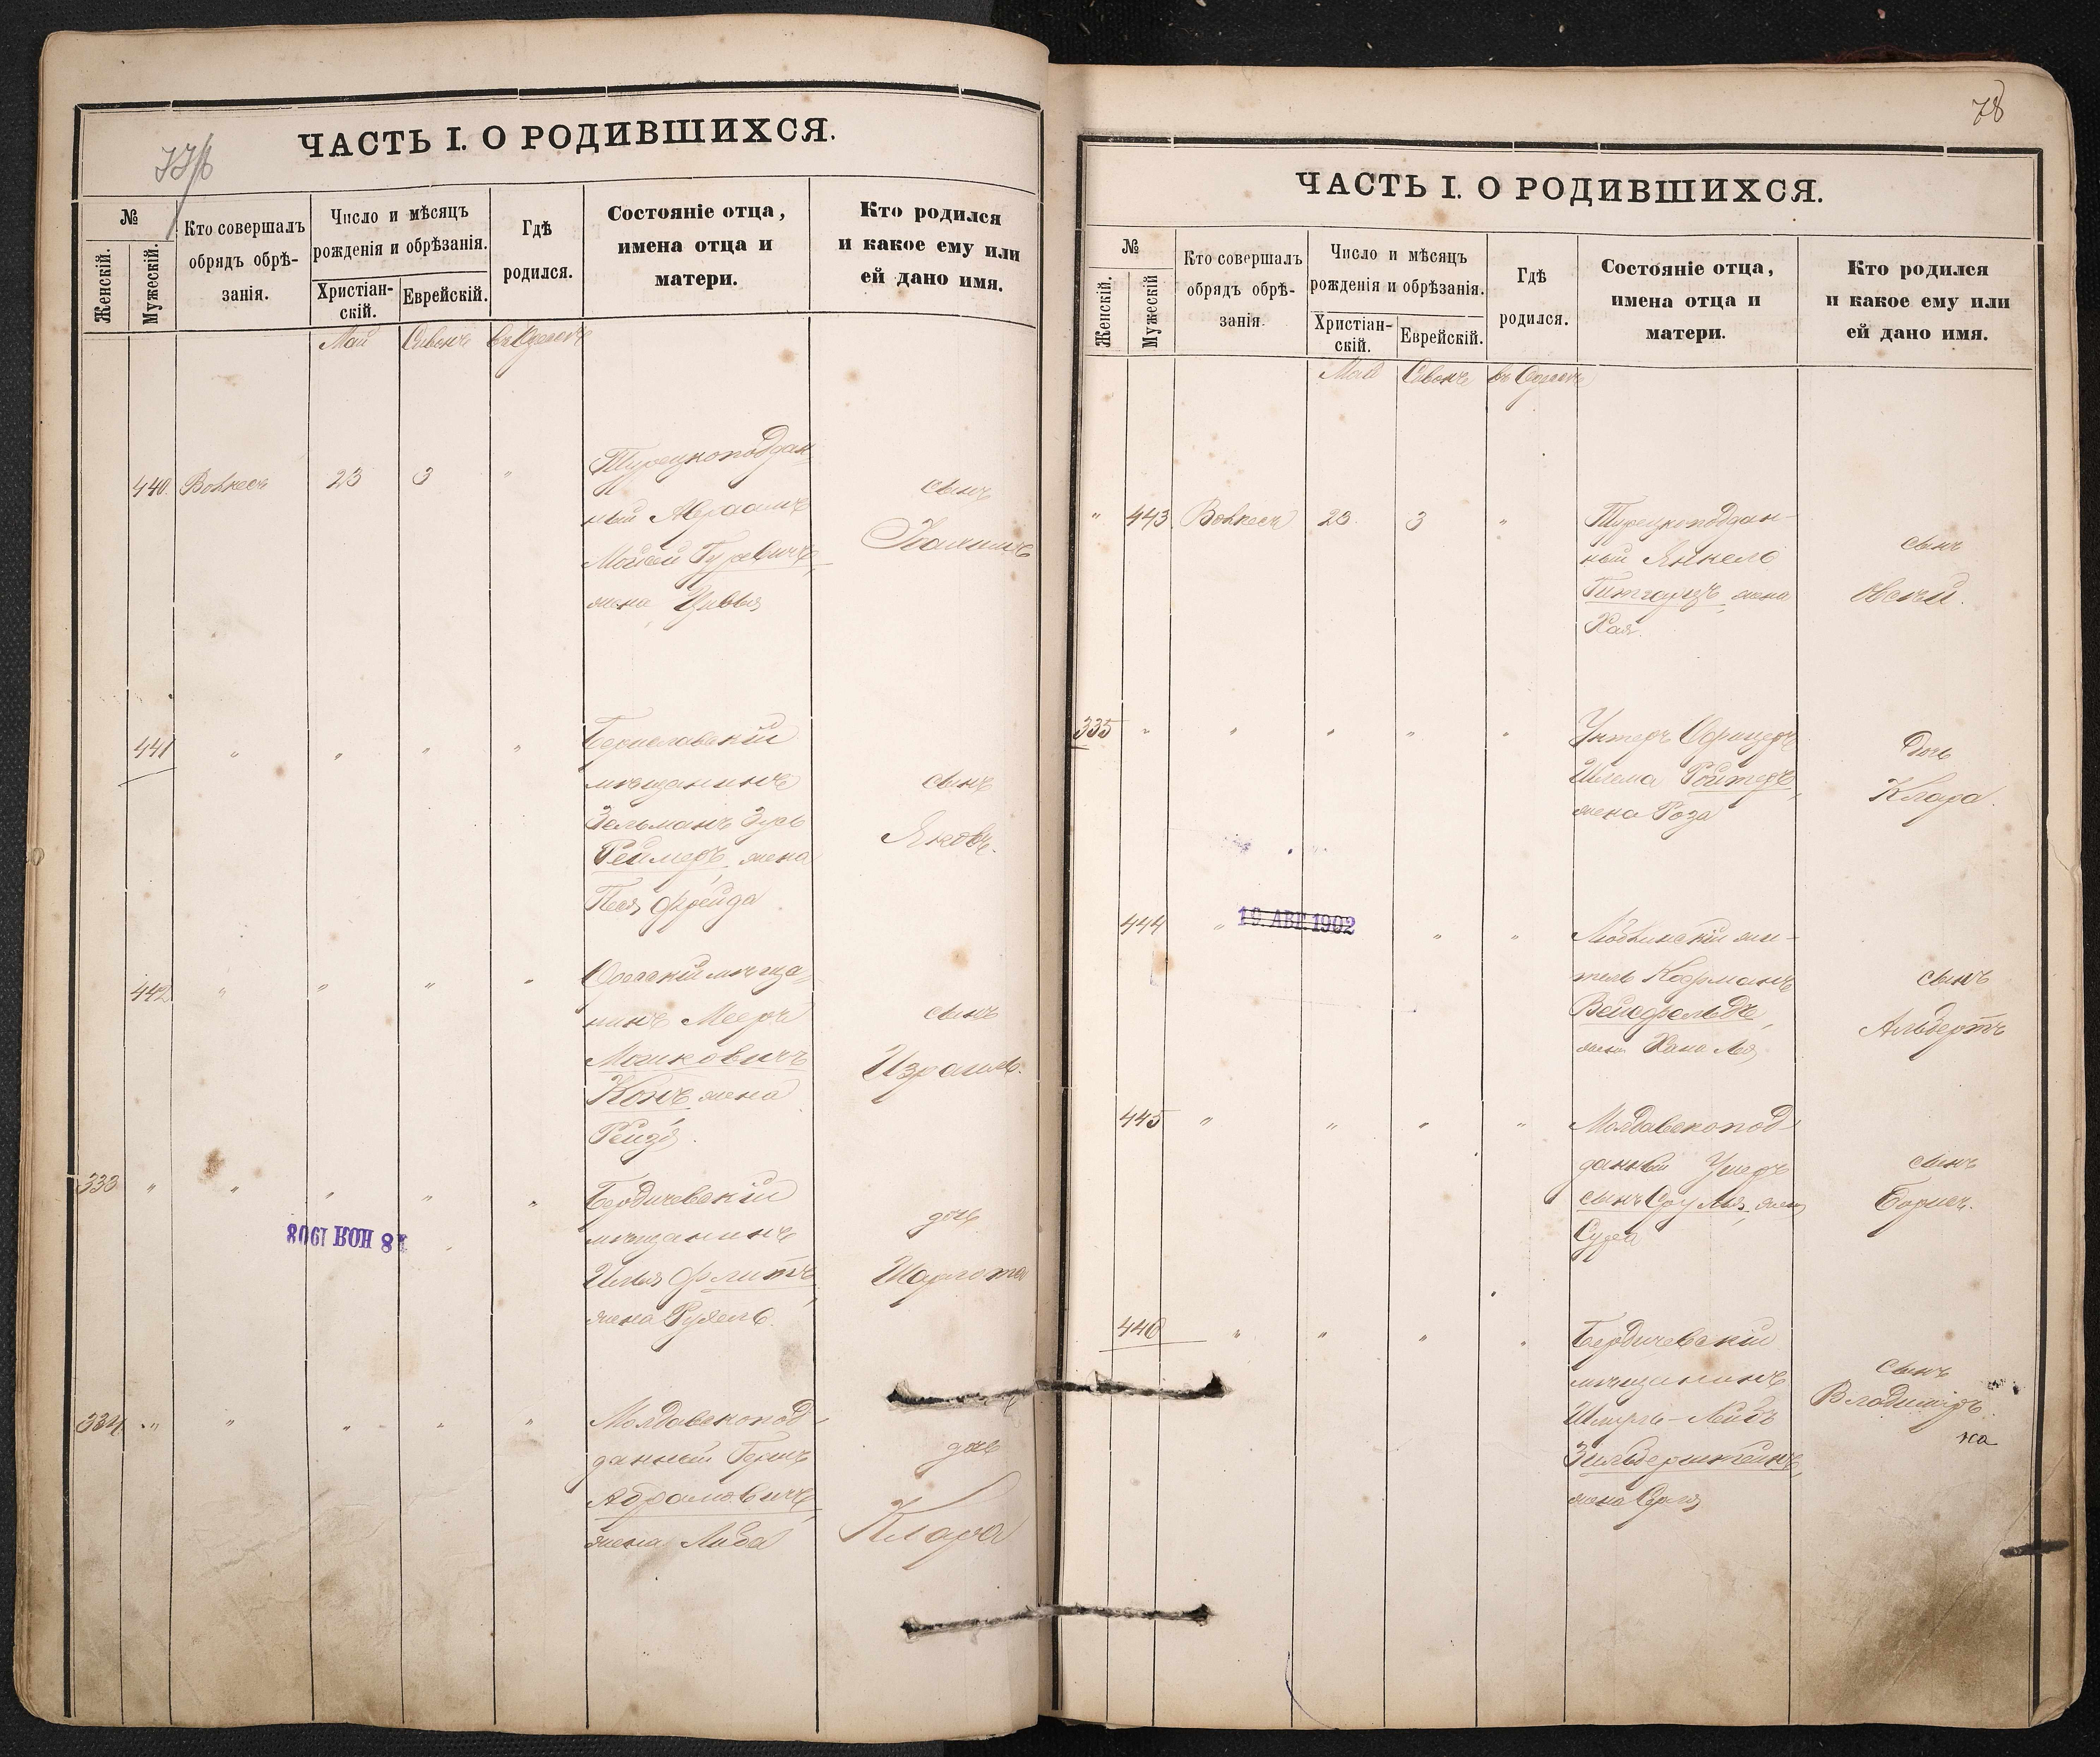 77/б
ЧАСТЬ I. О РОДИВШИХСЯ.
№
Женскій.
Мужескій.
Кто совершалъ
обрядъ обрѣ-
занія.
Число и мѣсяцъ
рожденія и обрѣзанія.
Христіан-
скій.
Еврейскій.
Гдѣ
родился.
Состояніе отца,
имена отца и
матери.
Кто родился
и какое ему или
ей дано имя.
Май Сивонъ въ Одессѣ
440. 23 3 "
Турецкоподдан-
ный Абраамъ
Мойсей Гуревичъ,
жена Цивья
сынъ
441 " " " "
Бериславскій
мѣщанинъ
Зельманъ Зусь
Реймеръ, жена
Песя Фрейда
сынъ
Яковъ.
442 " " " "
Одесскій мѣща-
нинъ Мееръ
Мошковичъ
Конъ жена
Рейзя.
сынъ
Израиль.
333 " " " " "
18 НОЯ 1908
Бердичевскій
мѣщанинъ
жена Рухель.
дочь
Шарлота
334 " " " " "
Молдавскопод-
данный Гершъ
Абрамовичъ,
жена Либа
дочь
Клара
78
ЧАСТЬ I. О РОДИВШИХСЯ.
№
Женскій.
Мужескій
Кто совершалъ
обрядъ обрѣ-
занія.
Число и мѣсяцъ
рожденія и обрѣзанія.
Христіан-
скій.
Еврейскій.
Гдѣ
родился.
Состояніе отца,
имена отца и
матери.
Кто родился
и какое ему или
ей дано имя.
Май Сивонъ въ Одессѣ
" 443 23 3 "
Турецкоподдан-
ный Янкель
жена
Хая.
сынъ
Овсѣй.
335 " " " " "
Унтеръ Офицеръ
Шлема Ройтеръ,
жена Роза
Дочь
Клара.
444 " 10. АВГ. 1902 " "
жи-
тель
Вейсфельдъ,
жена Хана Лея
сынъ
Альбертъ
445 " " " "
Молдавскопод-
данный Ушеръ
сынъ
Сура
сынъ
Борисъ.
446 " " " "
Бердичевскій
мѣщанинъ
Шмуль-Лейбъ
Зильберштейнъ,
жена
сынъ
Владиміръ
на